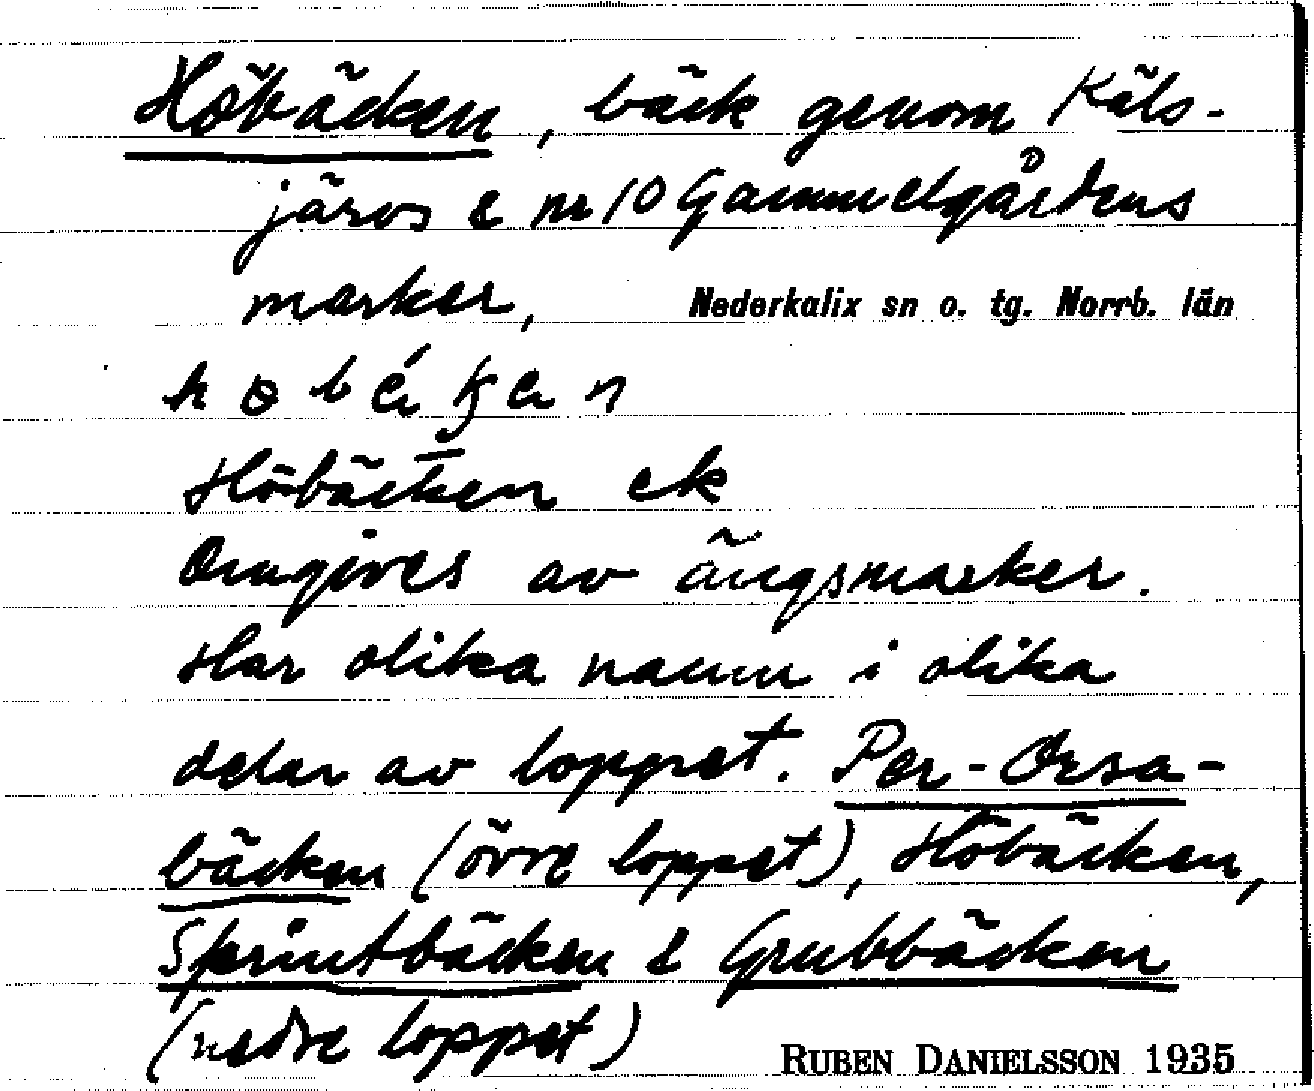 Höbäcken, bäck genom Käls-
järvs & nr 10 Gammelgårdens
marker, Nederkalix sn o. tg. Norrb. län
Höbäcken ek
Omgives av ängsmarker.
Har olika namn i olika
delar av loppet. Per-Orsa-
bäcken (övre loppet), Höbäcken,
Sprintbäcken & Grubbäcken
(nedre loppet)
RUBEN DANIELSSON 1935